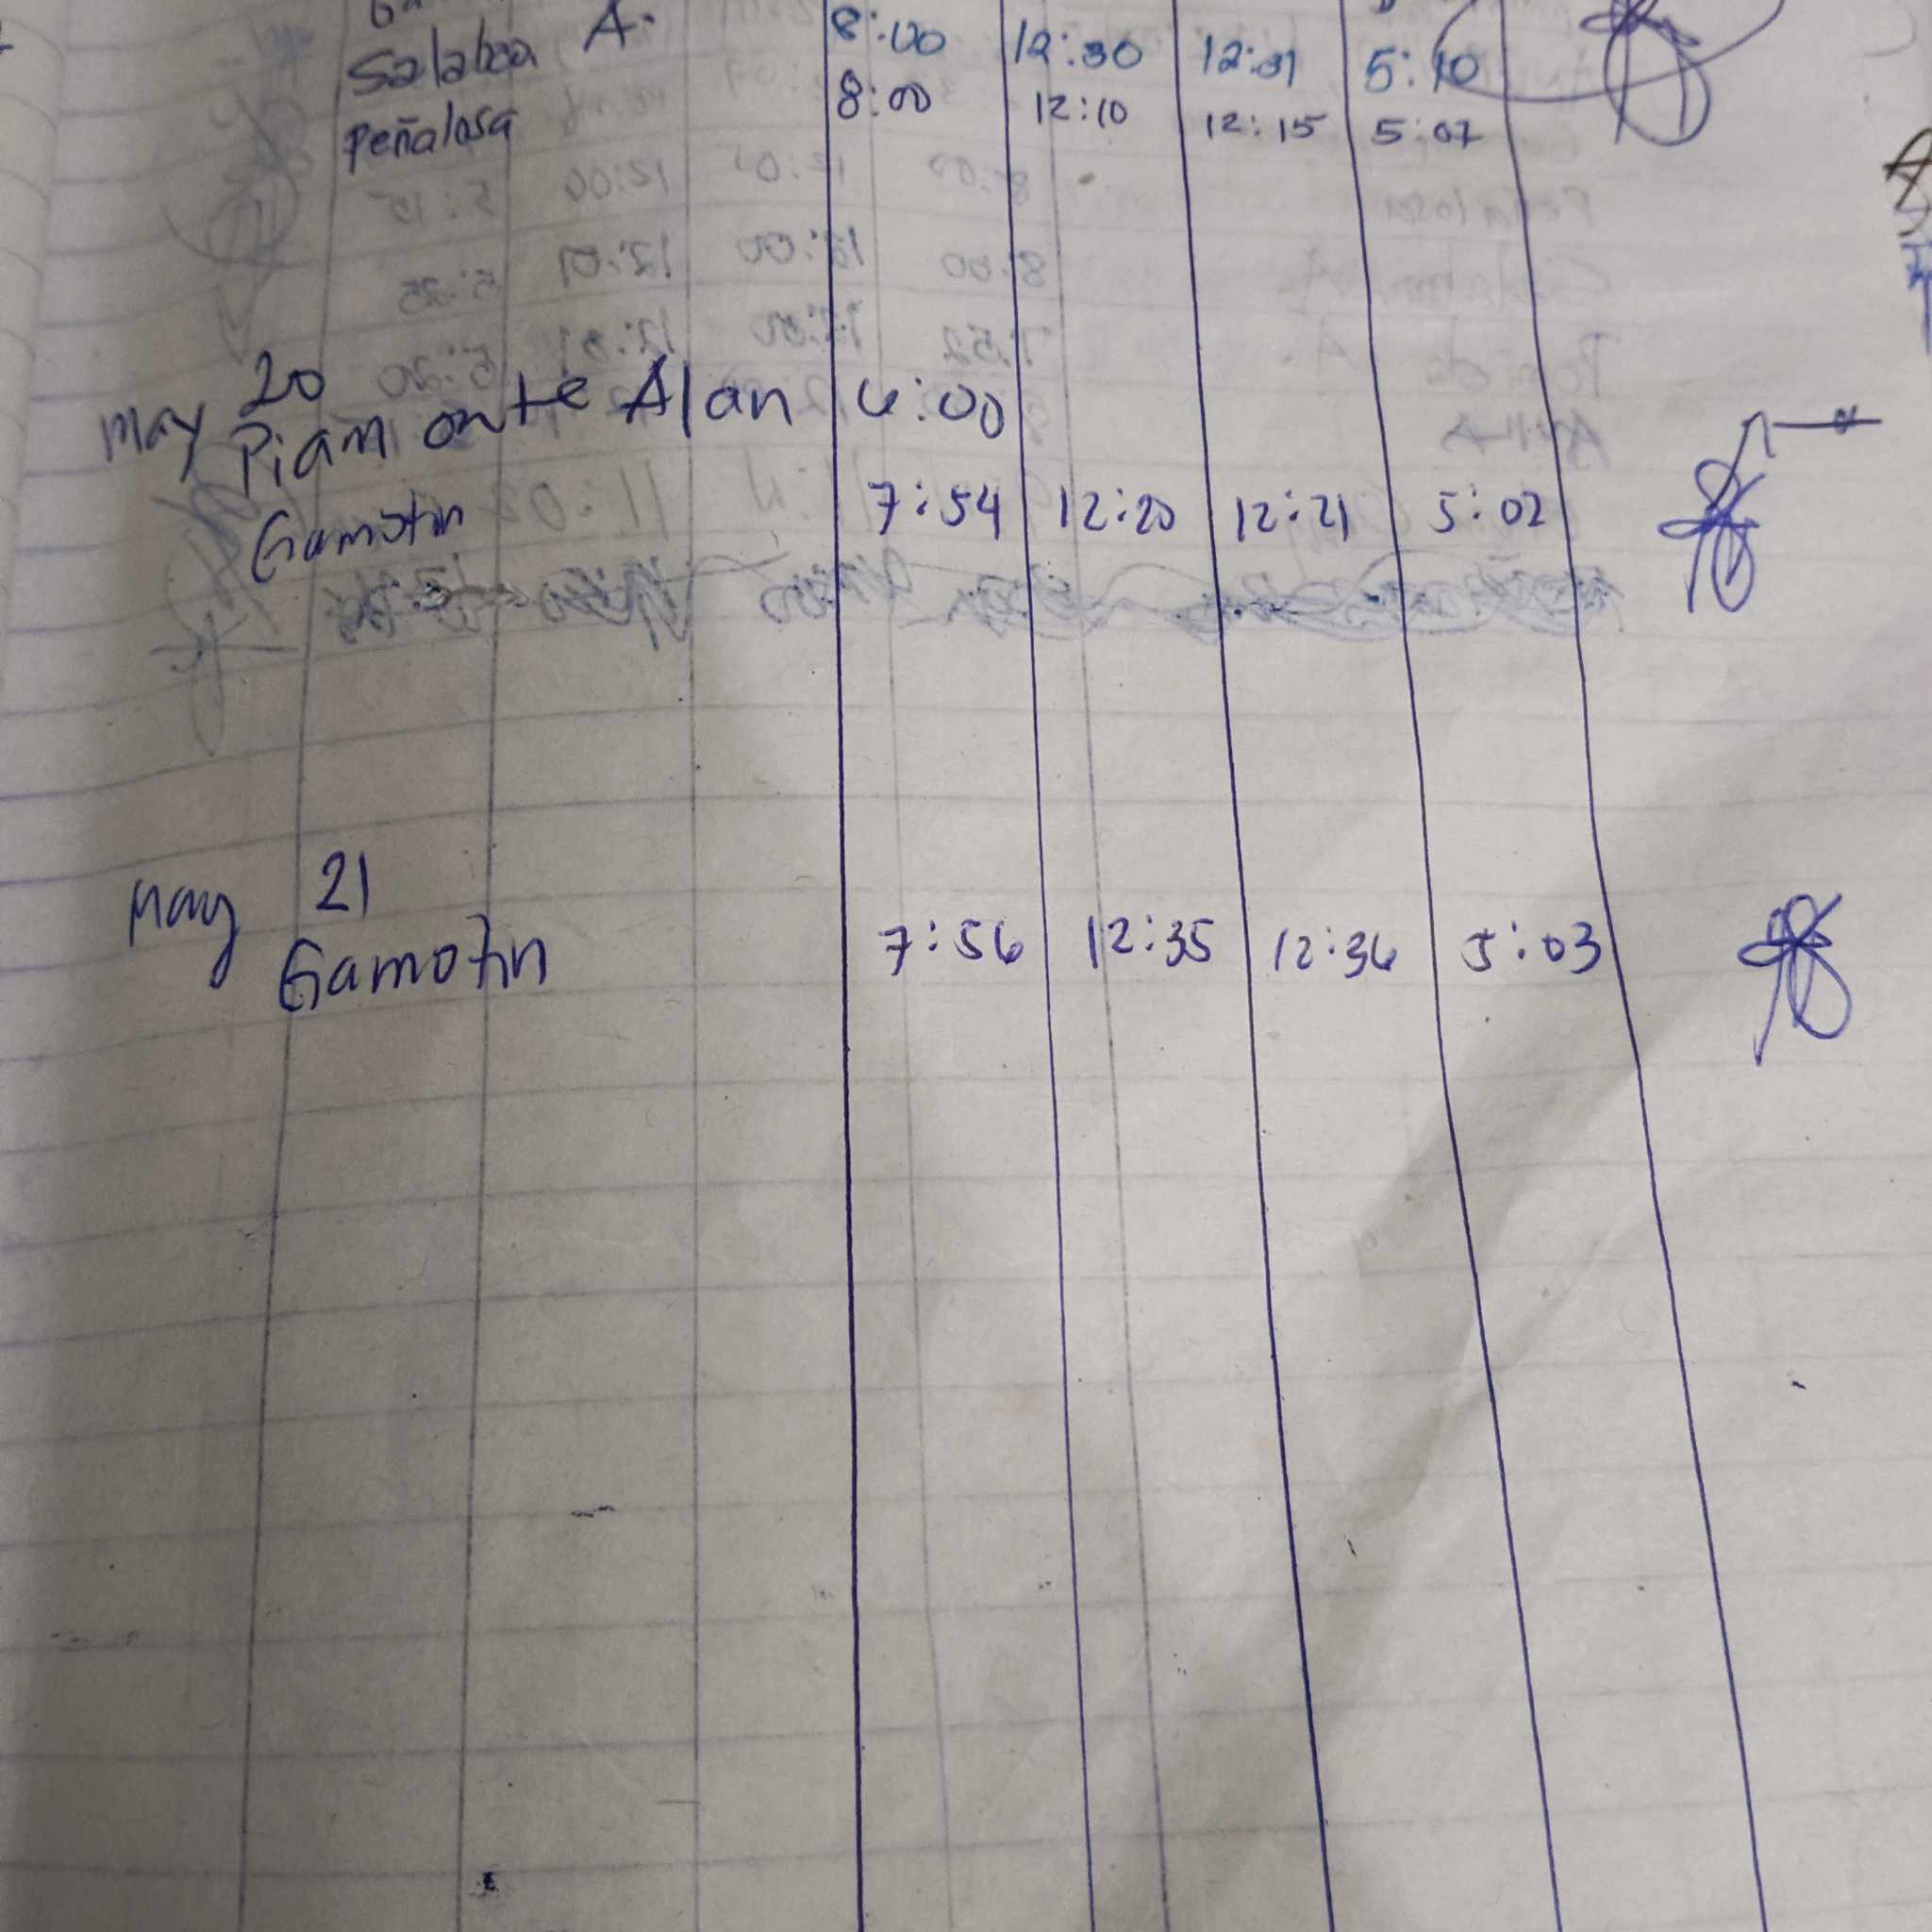 Salaboa A. 8:00 12:30 12:31 5:10
Peñalosa 8:00 12:10 12:15 5:07
May 20
Piamonte Alan 6:00
Gamotin 7:54 12:20 12:21 5:02
May 21
Gamotin 7:56 12:35 12:36 5:03